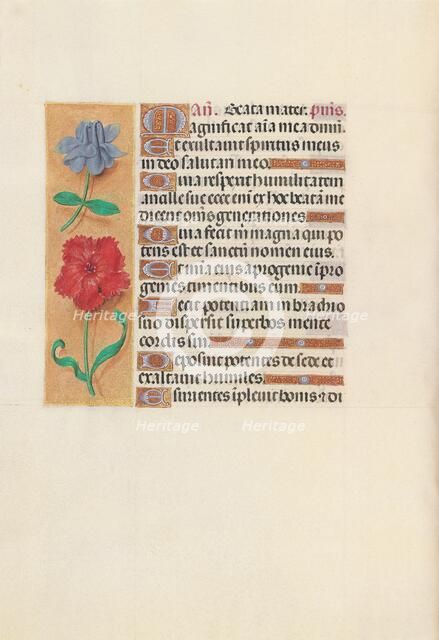 Añ. Beata mater. p̃ms.
Magnificat aĩa mea dñm̃.
Et exultauit spiritus meus
in deo salutari meo.
Quia respexit humilitatem
ancille sue ecce enĩ ex hoc beatã me
dicent om̃s generationes
Quia fecit m̃ magna qui po
tens est et sanctũ nomen eius.
Et mĩa eius a progenie ĩ pro
genies timentibus eum.
Fecit potentiam in brachio
suo dispersit superbos mente
cordis sui.
Deposuit potentes de sede et
exaltauit humiles.
Esurientes ĩpleuit bonis ⁊ di
Heritage Heritage
Heritage Heritage
Heritage Heritage